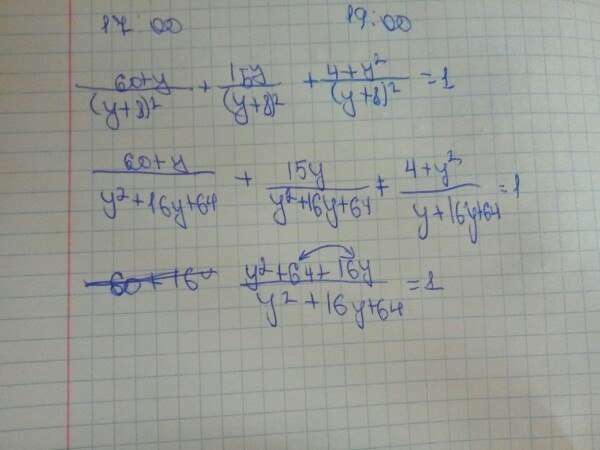 17:00 19:00
(60+y)/(y+8)² + 15y/(y+8)² + (4+y²)/(y+8)² = 1
(60+y)/(y²+16y+64) + 15y/(y²+16y+64) + (4+y²)/(y+16y+64) = 1
60+16 (y²+64+16y)/(y²+16y+64) = 1